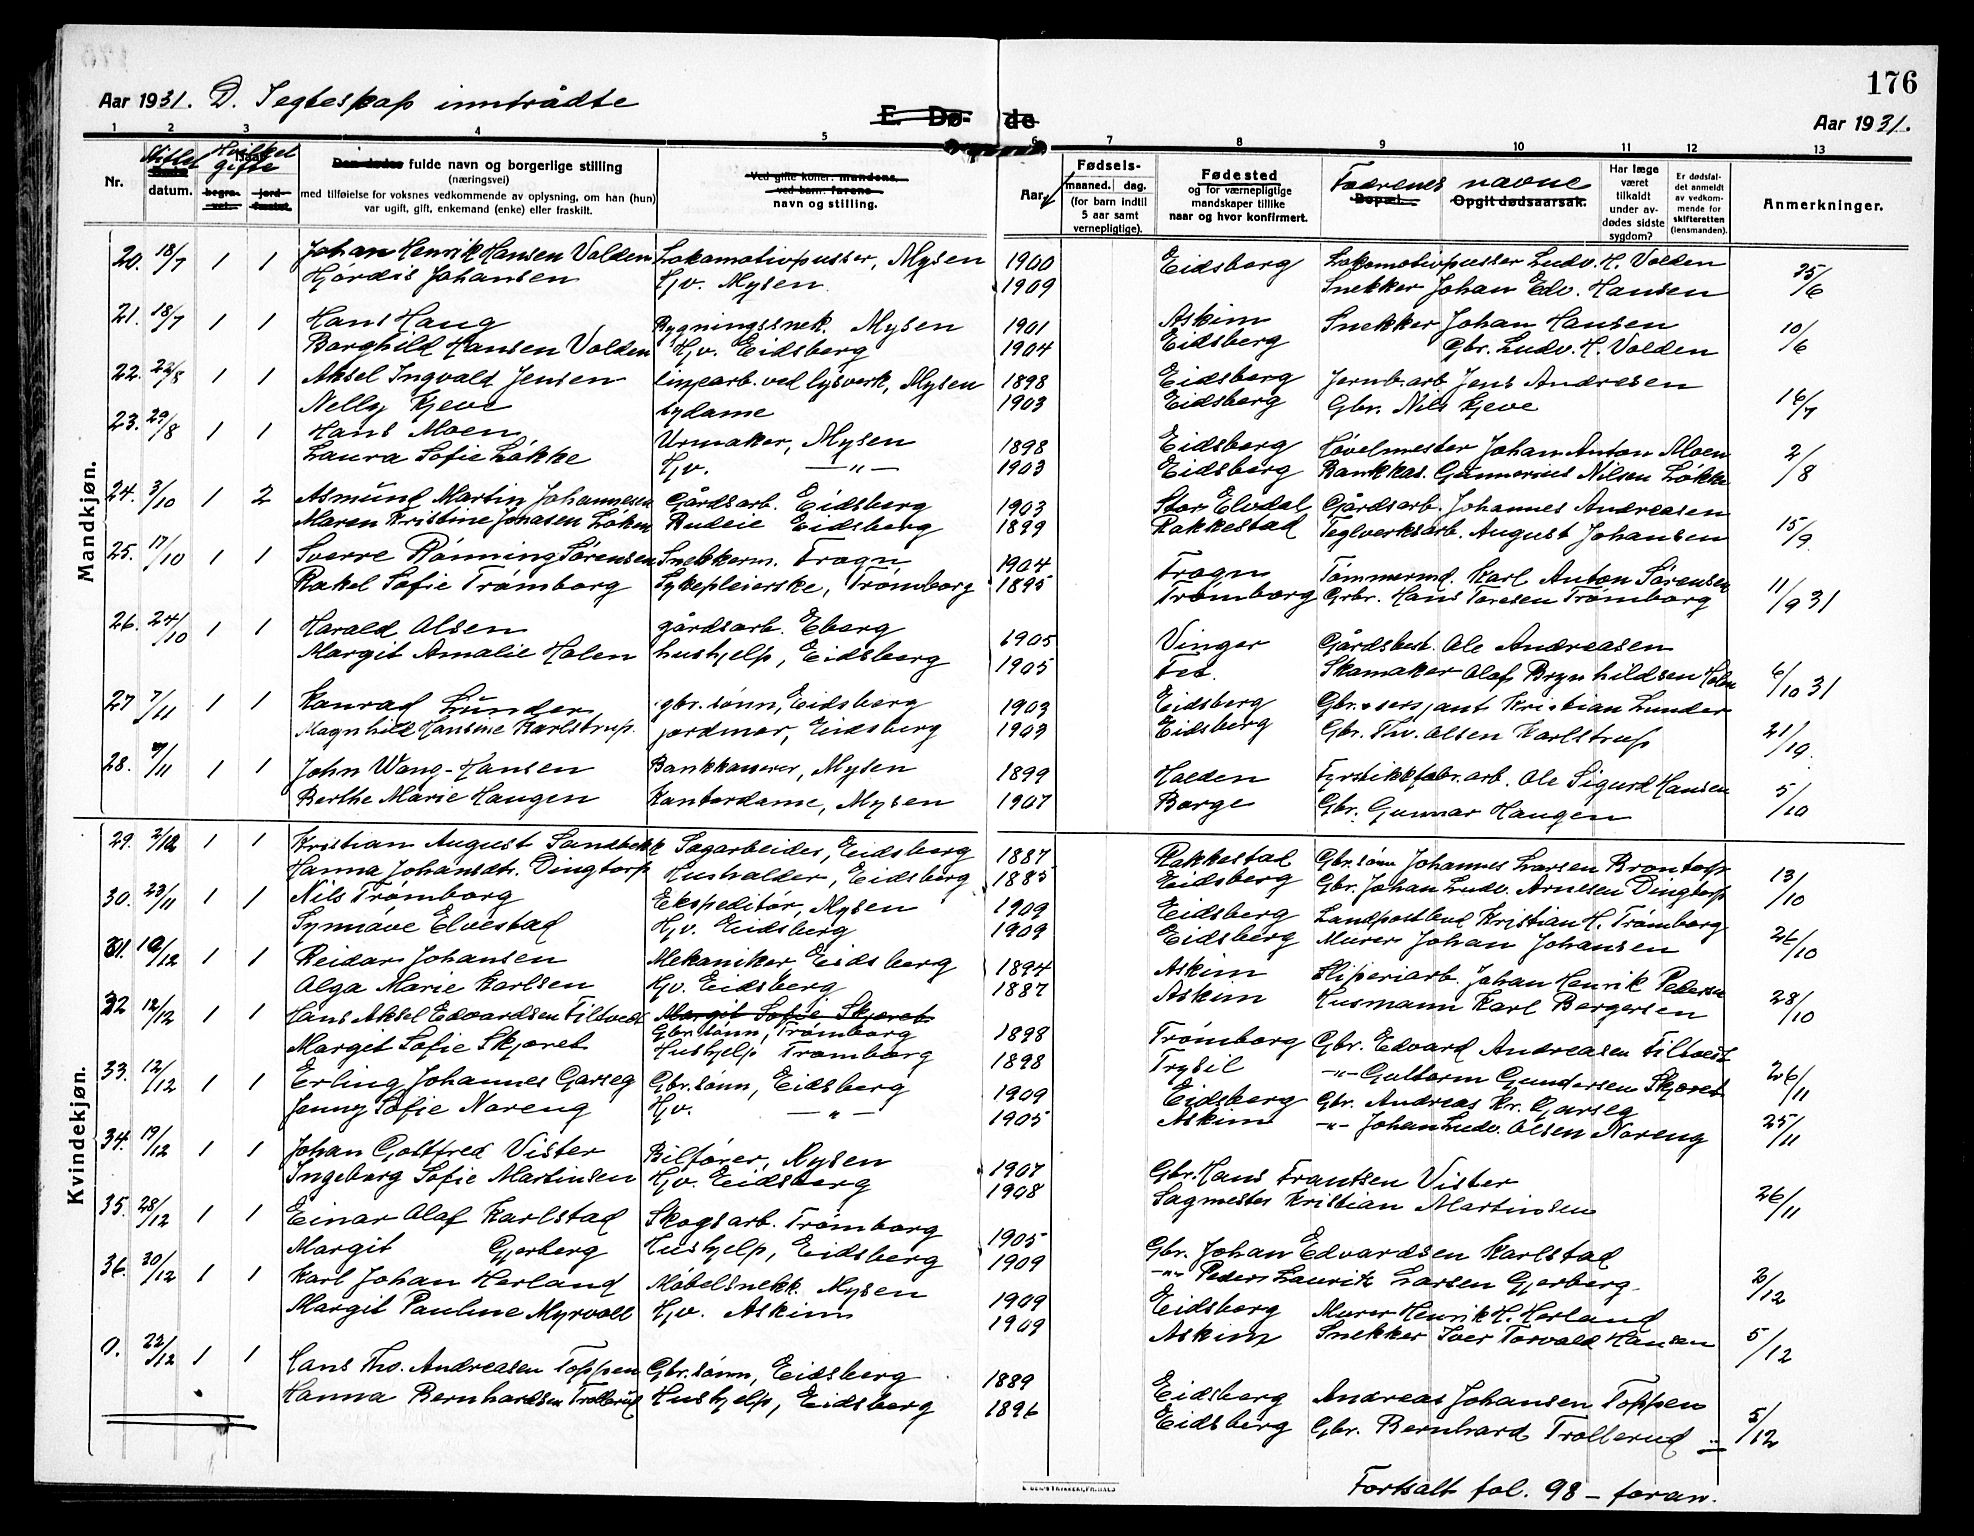 176
Aar 1931. D. I egteskap inntrådte
E. Dø- de
Aar 1931.
1 2 3 4 5 6 7 8 9 10 11 12 13
Nr. datum. Hvilket gifte begra- vet. jord- fæstet.
Den dødes fulde navn og borgerlige stilling
(næringsvei)
med tilføielse for voksnes vedkommende av oplysning, om han (hun)
var ugift, gift, enkemand (enke) eller fraskilt.
Ved gifte koner: mandens,
ved barn: farens
navn og stilling.
Aar.
Fødsels-
maaned. dag.
(for barn indtil
5 aar samt
vernepligtige).
Fødested
og for værnepligtige
mandskaper tillike
naar og hvor konfirmert.
Fædrenes navne
Bopæl. Opgit dødsaarsak.
Har læge
været
tilkaldt
under av-
dødes sidste
sygdom?
Er dødsfal-
det anmeldt
av vedkom-
mende for
skifteretten
(lensmanden).
Anmerkninger.
Mandkjøn.
20. 18/7 1 1 Johan Henrik Hansen Volden Lokomotivpusser, Mysen 1900 Eidsberg Lokomotivpusser Ludv. H. Volden 25/6
Hjørdis Johansen Hv. Mysen 1909 Snekker Johan Edv. Hansen
21. 18/7 1 1 Hans Haug Bygningssnek. Mysen 1901 Askim Snekker Johan Hansen 10/6
Borghild Hansen Volden Hv. Eidsberg 1904 Eidsberg Gbr. Ludv. H. Volden
22. 22/8 1 1 Aksel Ingvald Jensen linjearb. ved lysverk, Mysen 1898 Eidsberg Jernb.arb. Jens Andresen 16/7
Nelly Kjeve sydame 1903 Eidsberg Gbr. Nils Kjeve
23. 29/8 1 1 Hans Moen Urmaker, Mysen 1898 Eidsberg Høvelmester Johan Anton Moen 2/8
Laura Sofie Løkke Hv. —"— 1903 Eidsberg Bankkas. Gunnerius Nilsen Løkke
24. 3/10 1 2 Asmund Martin Johannesen Gårdsarb. Eidsberg 1903 Stor Elvdal Gårdsarb. Johannes Andreasen 15/9
Maren Kristine Jonasen Løken Budeie Eidsberg 1899 Rakkestad Teglverksarb. August Johansen
25. 17/10 1 1 Sverre Rønning Sørensen Snekkerm. Frogn 1904 Frogn Tømmermd. Karl Anton Sørensen 11/9 31
Rakel Sofie Trømborg Sykepleierske, Trømborg 1895 Trømborg Gbr. Hans Toresen Trømborg
26. 24/10 1 1 Harald Olsen gårdsarb. Eberg 1905 Vinger Gårdsbest. Ole Andreasen 6/10 31
Margit Amalie Holen hushjelp, Eidsberg 1905 Fet. Skomaker Olaf Brynhildsen Holen
27 7/11 1 1 Konrad Lunder gbr. sønn, Eidsberg 1903 Eidsberg Gbr. & sersjant Kristian Lunder 21/10.
Magnhild Hansine Karlstrup. jordmor, Eidsberg 1903 Eidsberg Gbr. Th. Olsen Karlstrup
28. 7/11 1 1 John Wang-Hansen Bankkasserer, Mysen 1899 Halden Fyrstikkfabr. arb. Ole Sigurd Hansen 5/10
Berthe Marie Haugen Kontordame, Mysen 1907 Borge Gbr. Gunnar Haugen
Kvindekjøn.
29. 2/12 1 1 Kristian August Sandbekk Sagarbeider, Eidsberg 1887 Rakkestad Gbr. sønn Johannes Larsen Brontorp 13/10
Hanna Johansdtr. Dingtorp Husholder, Eidsberg 1885 Eidsberg Gbr. Johan Ludv. Arnesen Dingtorp
30. 23/11 1 1 Nils Trømborg Ekspeditør, Mysen 1909 Eidsberg Landpostbud Kristian H. Trømborg 26/10
Synnøve Elvestad Hv. Eidsberg 1909 Eidsberg Murer Johan Johansen
31. 12/12 1 1 Reidar Johansen Mekaniker Eidsberg 1894 Askim Sliperiarb. Johan Henrik Pedersen 28/10
Olga Marie Karlsen Hv. Eidsberg 1887 Askim Husmann Karl Bergersen
32 12/12 1 1 Hans Aksel Edvardsen Filtvedt Margit Sofie Skjøret
Gbr. sønn, Trømborg 1898 Trømborg Gbr. Edvard Andreasen Filtvedt 26/11
Margit Sofie Skjøret Hushjelp Trømborg 1898 Trysil —"— Guttorm Gundersen Skjøret
33. 12/12 1 1 Erling Johannes Garseg Gbr. sønn, Eidsberg 1909 Eidsberg Gbr. Andreas Kr. Garseg 25/11
Jenny Sofie Noreng Hv. —"— 1905 Askim —"— Johan Ludv. Olsen Noreng
34. 19/12 1 1 Johan Gottfred Vister Bilfører, Mysen 1907 Gbr. Hans Frantsen Vister 26/11
Ingeborg Sofie Martinsen Hv. Eidsberg 1908 Sagmester Kristian Martinsen
35. 28/12 1 1 Einar Olaf Karlstad Skogsarb. Trømborg 1905 Gbr. Johan Edvardsen Karlstad 2/12
Margit Gjerberg Hushjelp, Eidsberg 1909 —"— Peder Lauritz Larsen Gjerberg
36. 30/12 1 1 Karl Johan Herland Møbelsnekk. Mysen 1909 Eidsberg Murer Henrik H. Herland 5/12
Margit Pauline Myrvoll Hv. Askim 1909 Askim Snekker Iver Torvald Hansen
0. 22/12 1 1 Hans Tho. Andreasen Toppen Gbr. sønn, Eidsberg 1889 Eidsberg Andreas Johansen Toppen 5/12
Hanna Bernhardsen Trollerud Hushjelp, Eidsberg 1896 Eidsberg Gbr. Bernhard Trollerud
Fortsatt fol. 98 – foran.